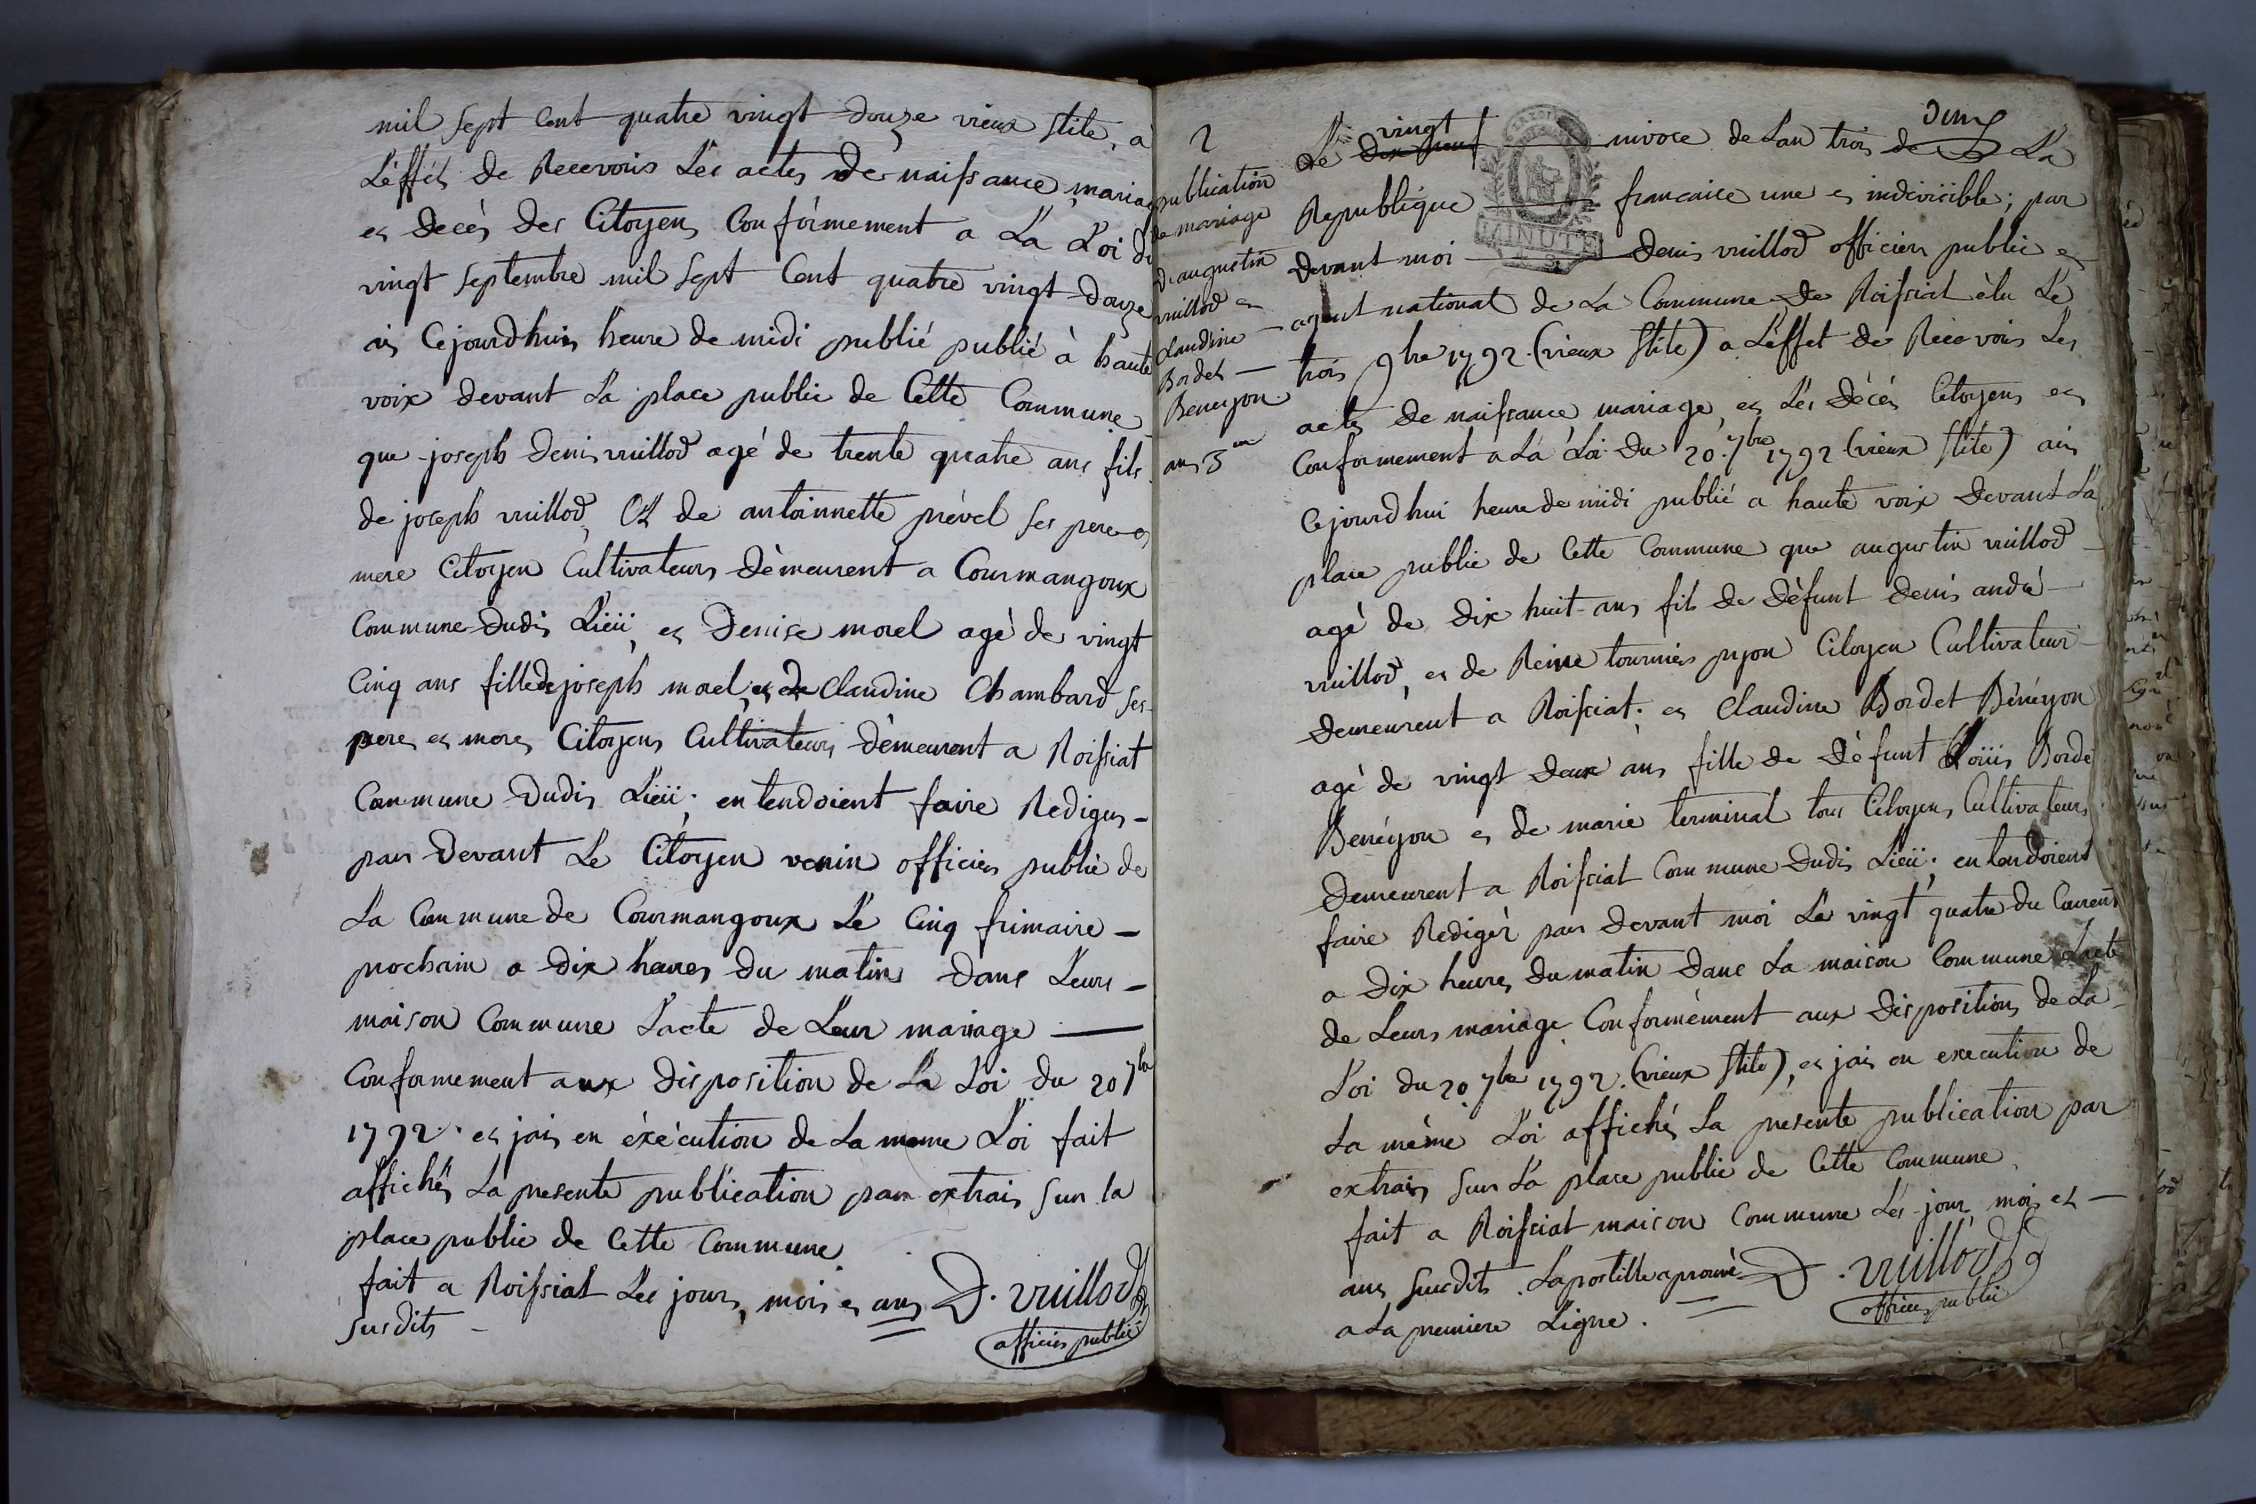 mil sept cent quatre vingt douze vieux stile, a
L'éffét de Recevoir Les actes de naissance, mariage
et decès des Citoyens Conformement a La Loi du
vingt septembre mil sept Cent quatre vingt douze
ais Cejourd'huis heure de midi publié publié à haute
voix devant la place public de Cette Commune
que joseph Denis vuillod agé de trente quatre ans fils
de joseph vuillod, Et de antoinnette prével ses pere et
mere Citoyen Cultivateurs Démeurent a Courmangoux
Commune Dudis Lieü, et Denise morel agé de vingt
Cinq ans fille de joseph morel, et de Claudine Chambard ses
peres et meres Citoyens Cultivateurs Démeurent a Roissiat
Commune Dudis Lieü; entendoient faire Rediger
par Devant Le Citoyen venin officier public de
La Commune de Courmangoux Le Cinq frimaire
prochain a dix heures du matin dans Leurs
maison Commune L'acte de Leur mariage
Conformement aux disposition de La Loi du 20 7bre
1792. et jais en éxècution de La meme Loi fait
affichér La presente publication par extrais sur la
place public de Cette Commune
fait a Roissiat Les jours, mois et ans D. vuillod
susdits officier public
2
publication
de mariage
D'augustin
vuillod et
Claudine
Bordet
Beneyon.
an 3em
vingt
Deux
Le dix neuf nivose de L'an trois de La
Republique francaise une et indivisible; par
devant moi Denis vuillod officier public et
MINUTE
agent national de La Commune de Roissiat élu Le
trois 9bre 1792. (vieux stile) a L'éffet de Recevoir Les
actes de naissance, mariage, et Les Décès Citoyens et
Conformement a La Loi du 20. 7bre 1792 (vieux stile) ais
Cejourd'hui heure de midi publié a haute voix devant La
place public de Cette Commune que augustin vuillod
agé de dix huit ans fils de défunt Denis andré
vuillod, et de Reine tournier pyon Citoyen Cultivateur
Demeurent a Roissiat. et Claudine Bordet Bénéyon
agé de vingt deux ans fille de Défunt Loüis Borde
Benéyon et de marie terminal tous Citoyens Cultivateurs
Demeurent a Roissiat Commune Dudis Lieü; entendoient
faire Redigér par devant moi Le vingt quatre du Courent
a dix heures du matin dans La maison Commune L'acte
de Leurs mariage Conformément aux dispositions de La
Loi du 20 7bre 1792. (vieux stile), et jais en execution de
La même Loi affichés La presente publication par
extrais sur La place public de Cette Commune
fait a Roissiat maison Commune Les jour, mois et
ans susdits. Lapostille aprouvé D. vuillod
a La premiere Ligne. officier public